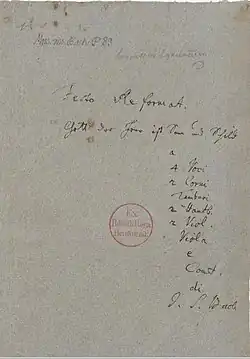 Mus. ms. Bach P 83
Festo Reformat.
Gott der Herr ist Son und Schild
a
4 Voci
2 Corni
Tamburi
2 Hautb.
2 Viol.
Viola
e
Cont.
di
J. S. Bach
Ex
Regia
Berolinensi